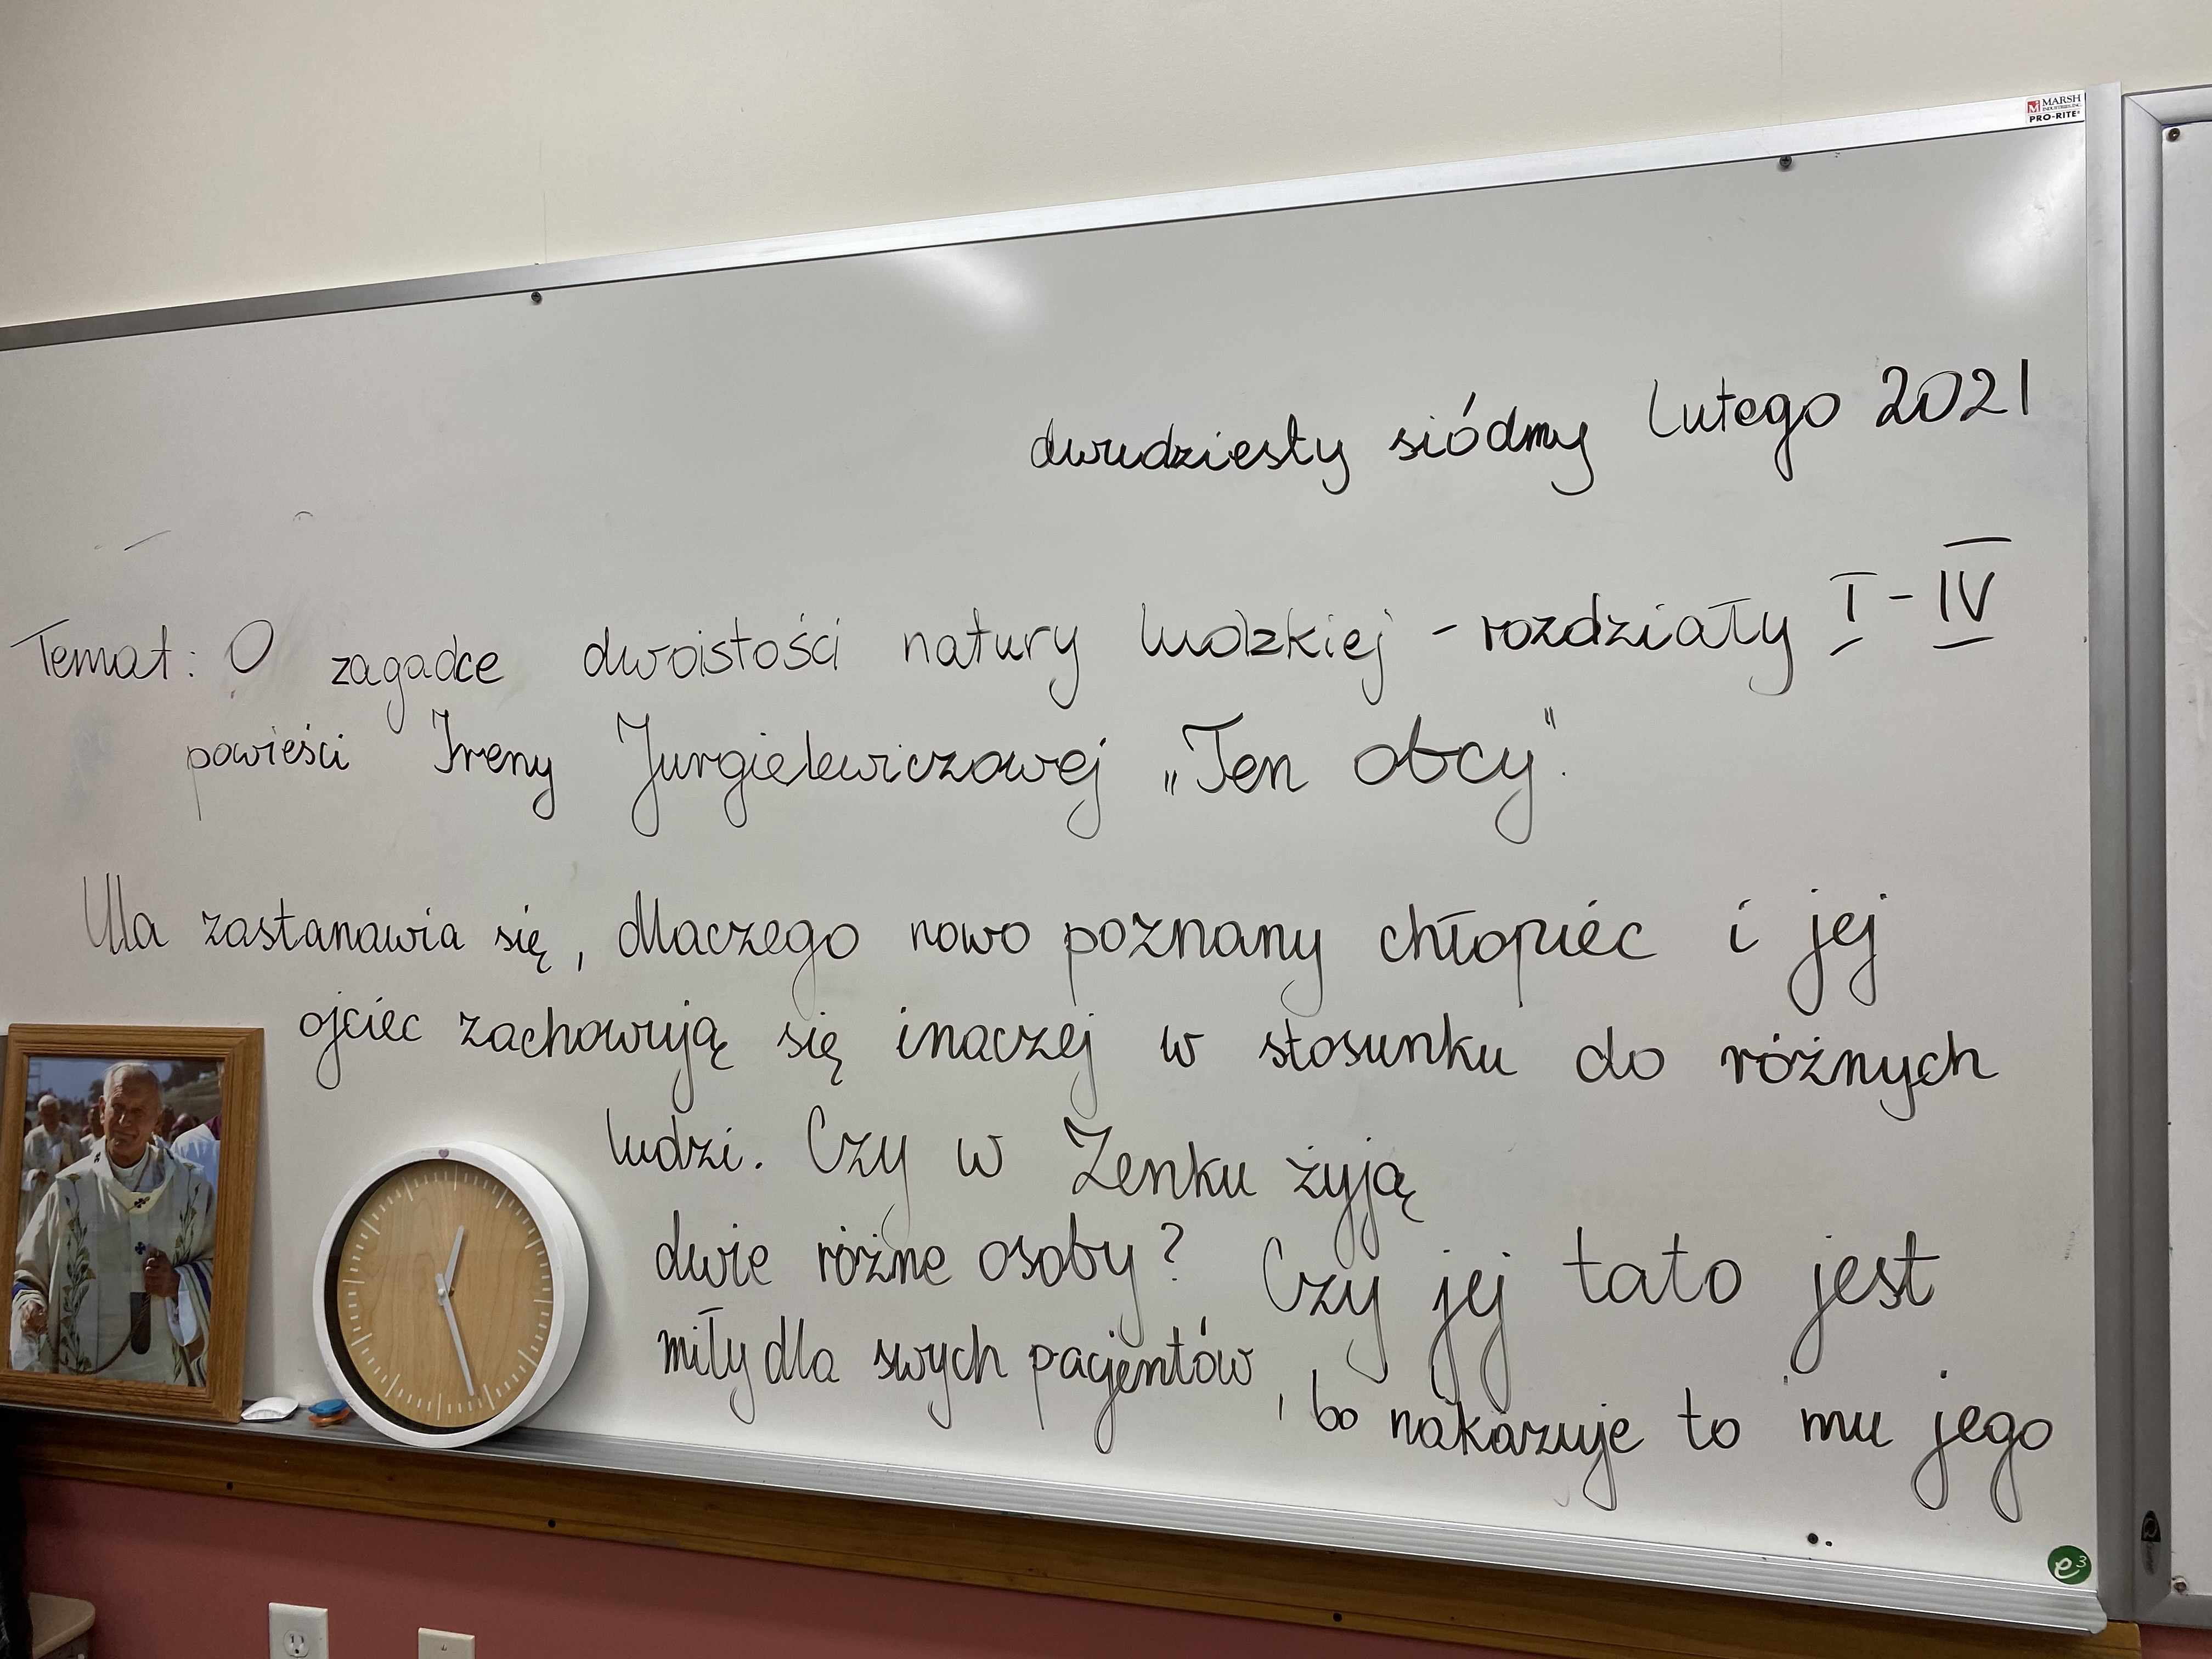 MARSH
INDUSTRIES, INC.
PRO-RITE®
dwudziesty siódmy lutego 2021
Temat: O zagadce dwoistości natury ludzkiej - rozdziały I - IV
powieści Ireny Jurgielewiczowej „Ten obcy".
Ula zastanawia się, dlaczego nowo poznany chłopiec i jej
ojciec zachowują się inaczej w stosunku do różnych
ludzi. Czy w Zenku żyją
dwie różne osoby? Czy jej tato jest
miły dla swych pacjentów, bo nakazuje to mu jego
e³